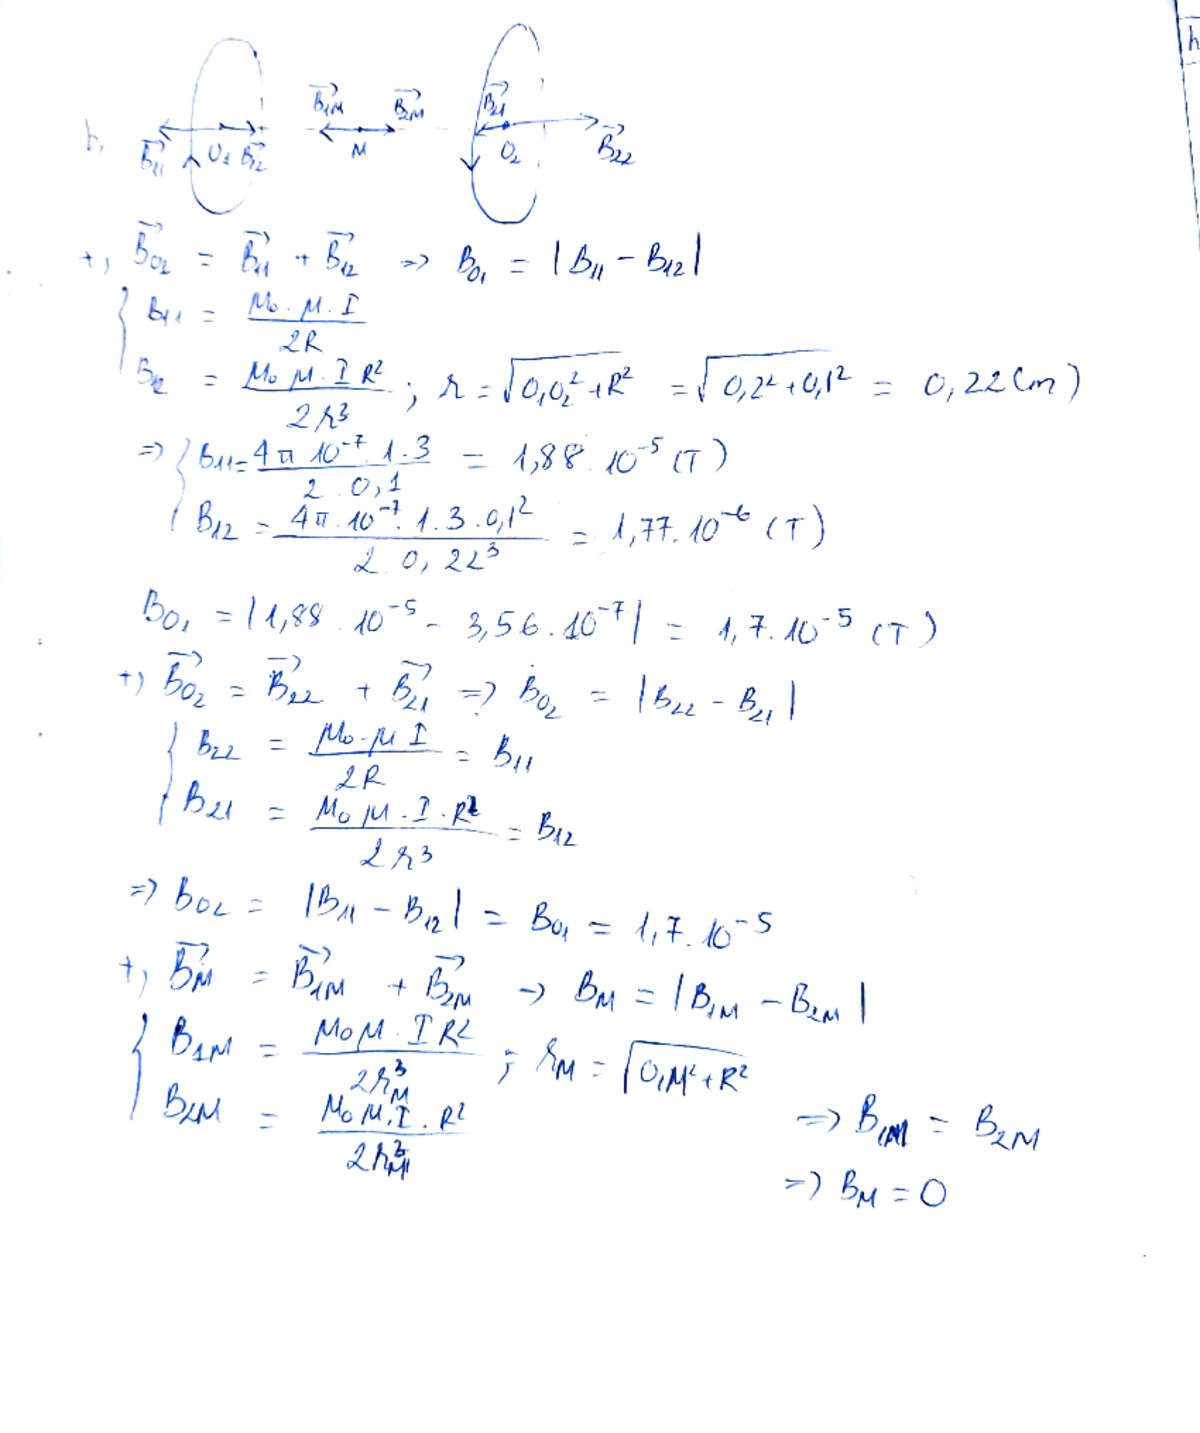 h
b,
B₁₁→ O₁ B₁₂→ B₁M→ M B₂M→ B₂₁→ O₂ B₂₂→
+, B₀₂→ = B₁₁→ + B₁₂→ => B₀₁ = |B₁₁ - B₁₂|
B₁₁ = μ₀.μ.I / 2R
B₁₂ = μ₀ μ.I R² / 2r³ ; r = √(0₁0₂² + R²) = √(0,2² + 0,1²) = 0,22 (m)
=> B₁₁ = 4π 10⁻⁷ 1.3 / 2.0,1 = 1,88.10⁻⁵ (T)
B₁₂ = 4π.10⁻⁷.1.3.0,1² / 2.0,22³ = 1,77.10⁻⁶ (T)
B₀₁ = |1,88.10⁻⁵ - 3,56.10⁻⁷| = 1,7.10⁻⁵ (T)
+) B₀₂→ = B₂₂→ + B₂₁→ => B₀₂ = |B₂₂ - B₂₁|
B₂₂ = μ₀.μ I / 2R = B₁₁
B₂₁ = μ₀ μ.I.R² / 2r³ = B₁₂
=> B₀₂ = |B₁₁ - B₁₂| = B₀₁ = 1,7.10⁻⁵
+, B_M→ = B₁M→ + B₂M→ -> B_M = |B₁M - B₂M|
B₁M = μ₀μ.I R² / 2r_M³ ; r_M = √(0₁M² + R²)
B₂M = μ₀ μ.I.R² / 2r_M³
=> B₁M = B₂M
=> B_M = 0